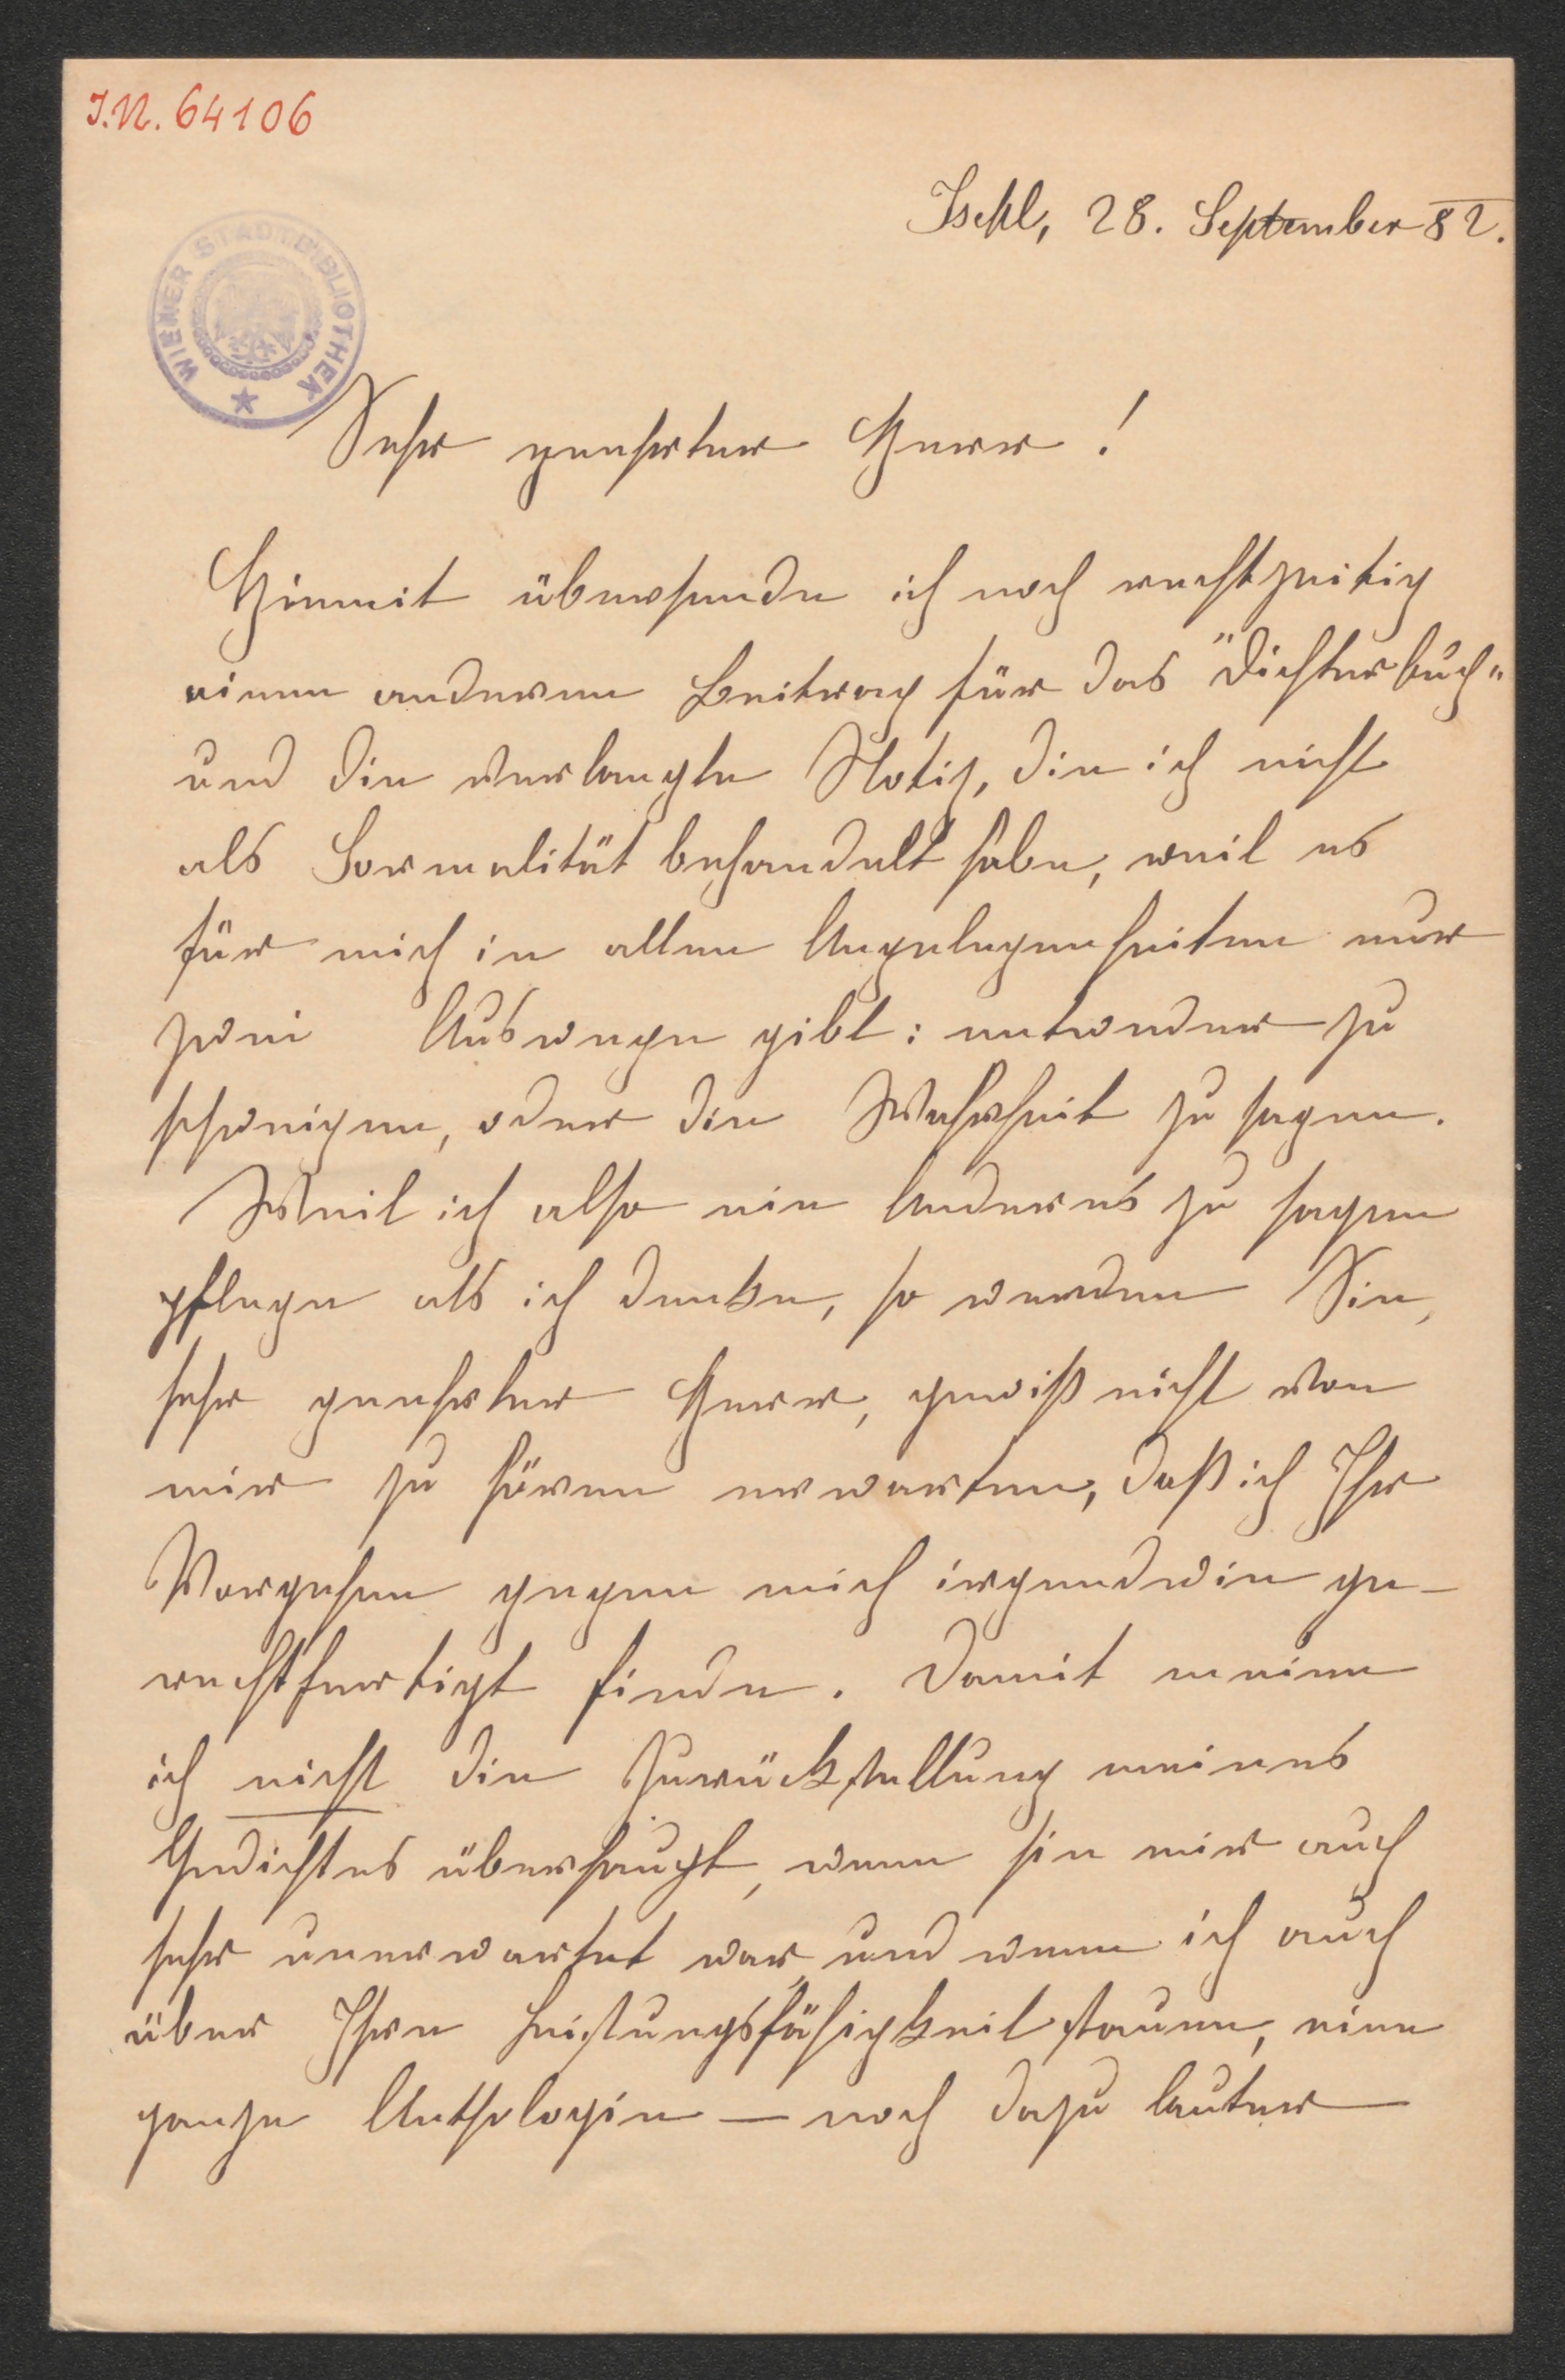 J.N. 64106
Ischl, 28. September 82.
WIENER STADTBIBLIOTHEK
Sehr geehrter Herr!
Hiemit übersende ich noch rechtzeitig
einen anderen Beitrag für das "Dichterbuch"
und die verlangte Notiz, die ich nicht
als Formalität behandelt habe, weil es
für mich in allen Angelegenheiten nur
zwei Auswege gibt: entweder zu
schweigen, oder die Wahrheit zu sagen.
Weil ich also nie Anderes zu sagen
pflege als ich denke, so werden Sie,
sehr geehrter Herr, gewiß nicht von
mir zu hören erwarten, daß ich Ihr
Vorgehen gegen mich irgendwie ge-
rechtfertigt finde. Damit meine
ich nicht die Zurückstellung meines
Gedichtes überhaupt, wenn sie mir auch
sehr unerwartet war, und wenn ich auch
über Ihre Leistungsfähigkeit staune, eine
ganze Anthologie — noch dazu lauter